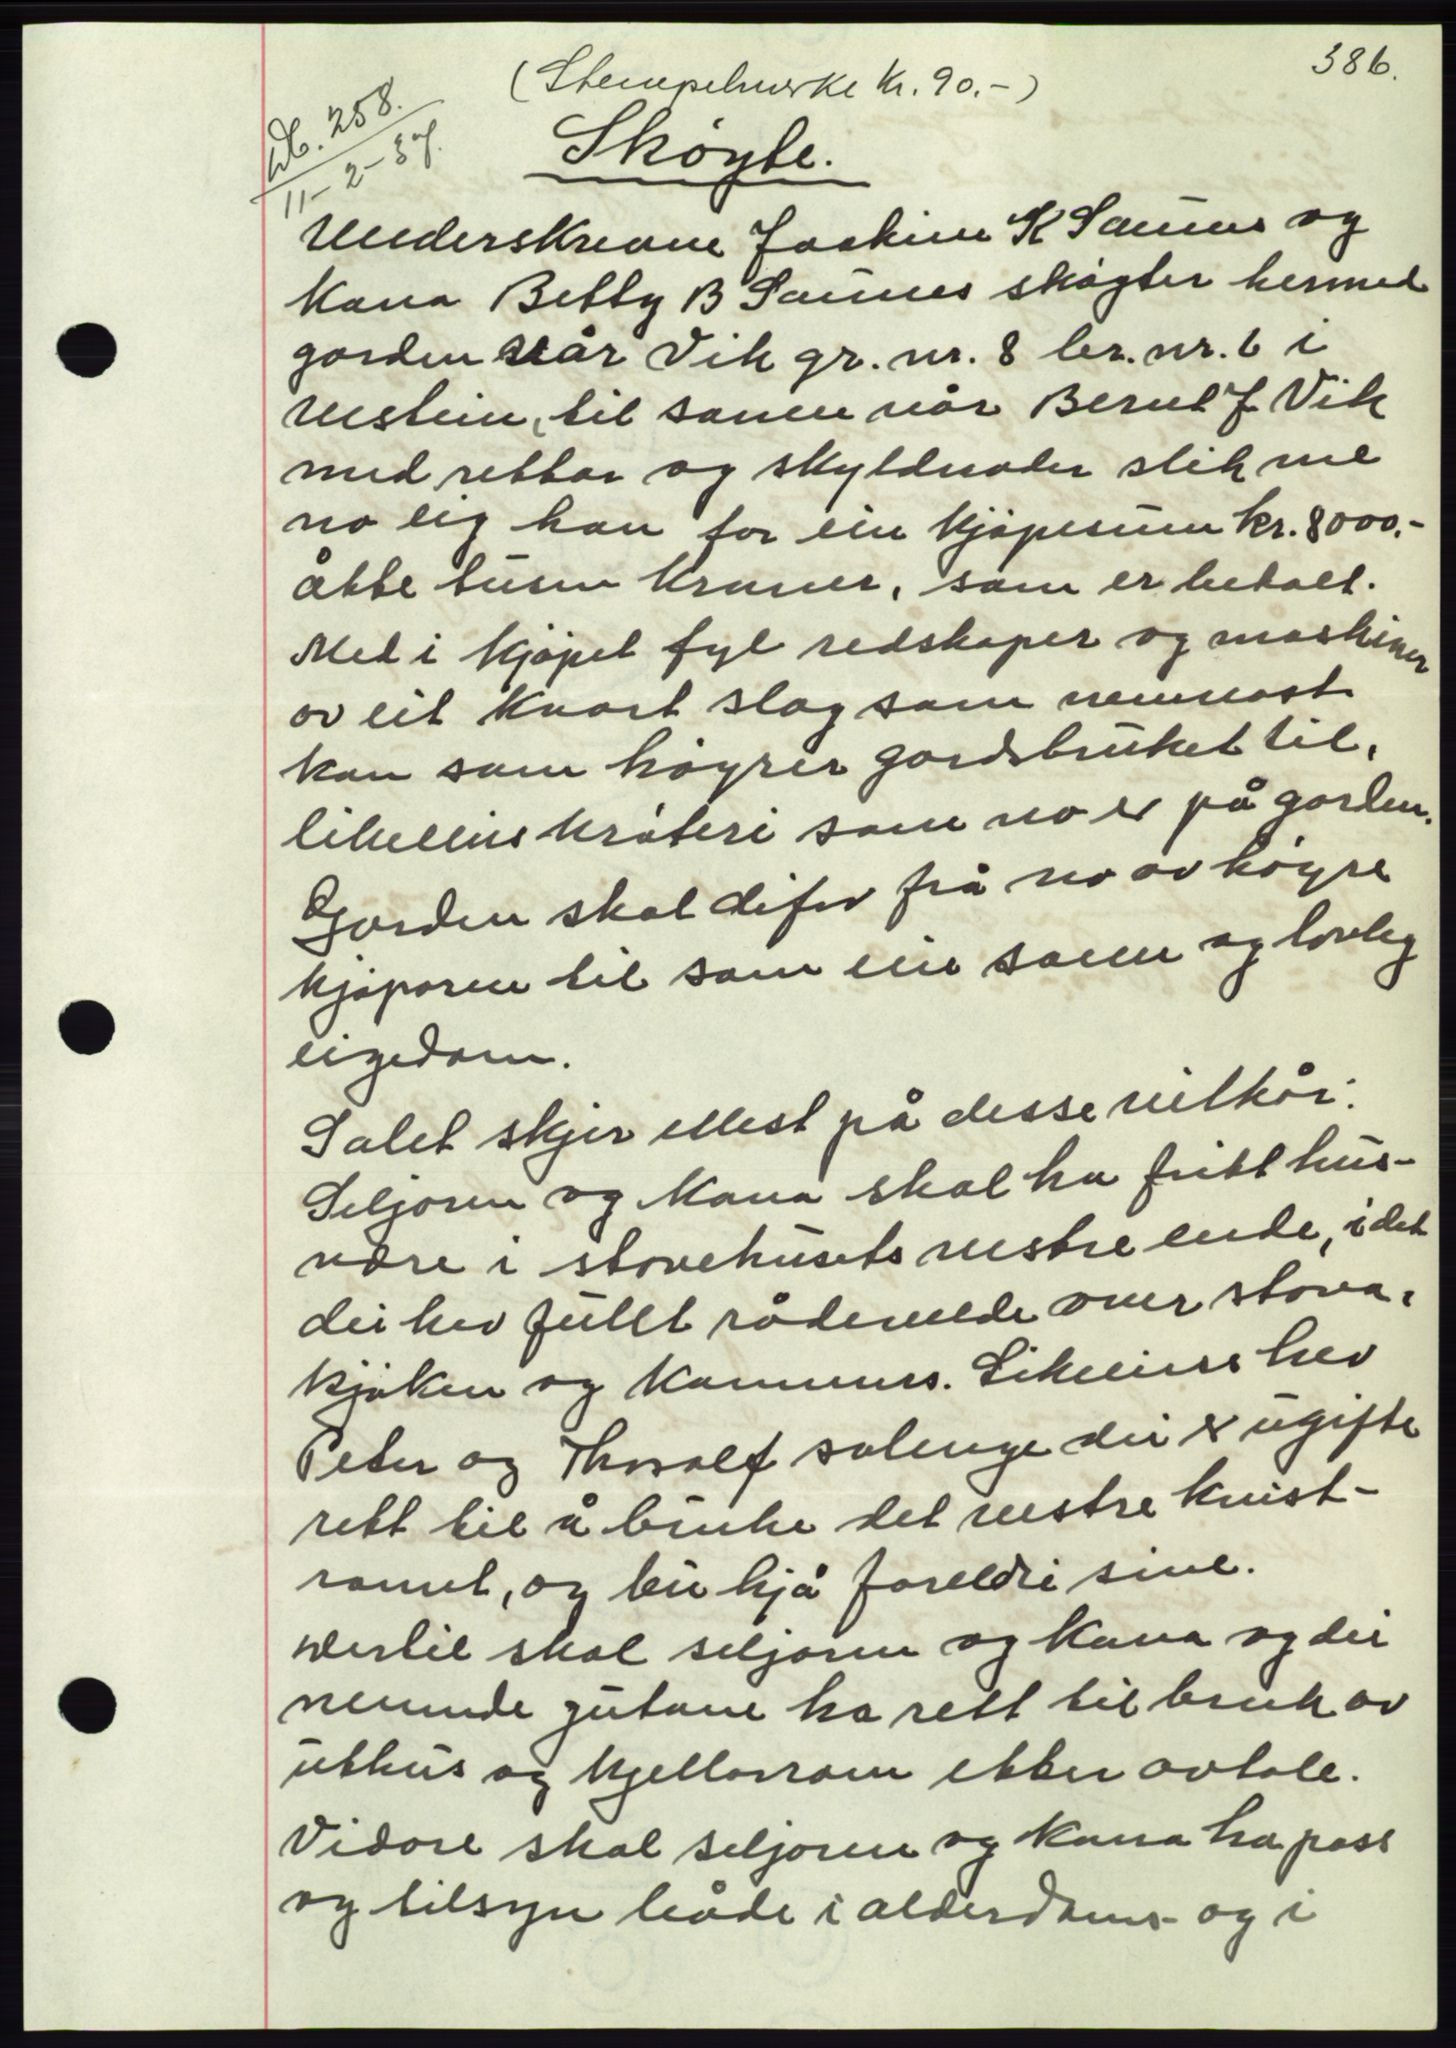 386.
(Stempelmerke kr. 90.-)
Db. 258.
11-2-37.
Skøyte.
Underskrevne Joakim K Saunes og
kona Betty B Saunes skøyter hermed
garden vår Vik gr. nr. 8 br. nr. 6 i
Ulstein, til sonen vår Bernt J Vik
med rettar og skyldnader slik me
no eig han for ein kjøpesum kr. 8000.-
åtte tusen kroner, som er betalt.
Med i kjøpet fyl redskaper og maskiner
av eit kvart slag som nemnast
kan som høyrer gardsbruket til,
likeeins krøteri som no er på garden.
Garden skal difor frå no av høyre
kjøparen til som ein sannu og lovleg
eigedom.
Salet skjer ellest på desse vilkår:
Seljaren og kona skal ha fritt hus-
være i stovehusets vestre ende, i det
dei hev fullt råderelde over stova,
kjøken og kammers. Likeeins hev
Peter og Thoralf solenge dei er ugifte
rett til å bruke det vestre kvist-
romet, og bu hjå foreldri sine.
Dertil skal seljaren og kona og dei
nemnde gutane ha rett til bruk av
uthus og kjellarrom etter avtale.
Vidare skal seljaren og kona ha pass
og tilsyn både i alderdoms- og i